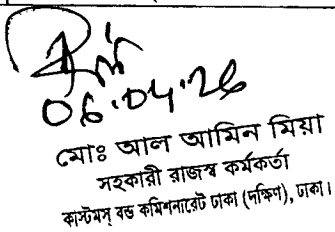 ০৬.০৪.২৬
মোঃ আল আমিন মিয়া
সহকারী রাজস্ব কর্মকর্তা
কাস্টমস্ বন্ড কমিশনারেট ঢাকা (দক্ষিণ), ঢাকা।